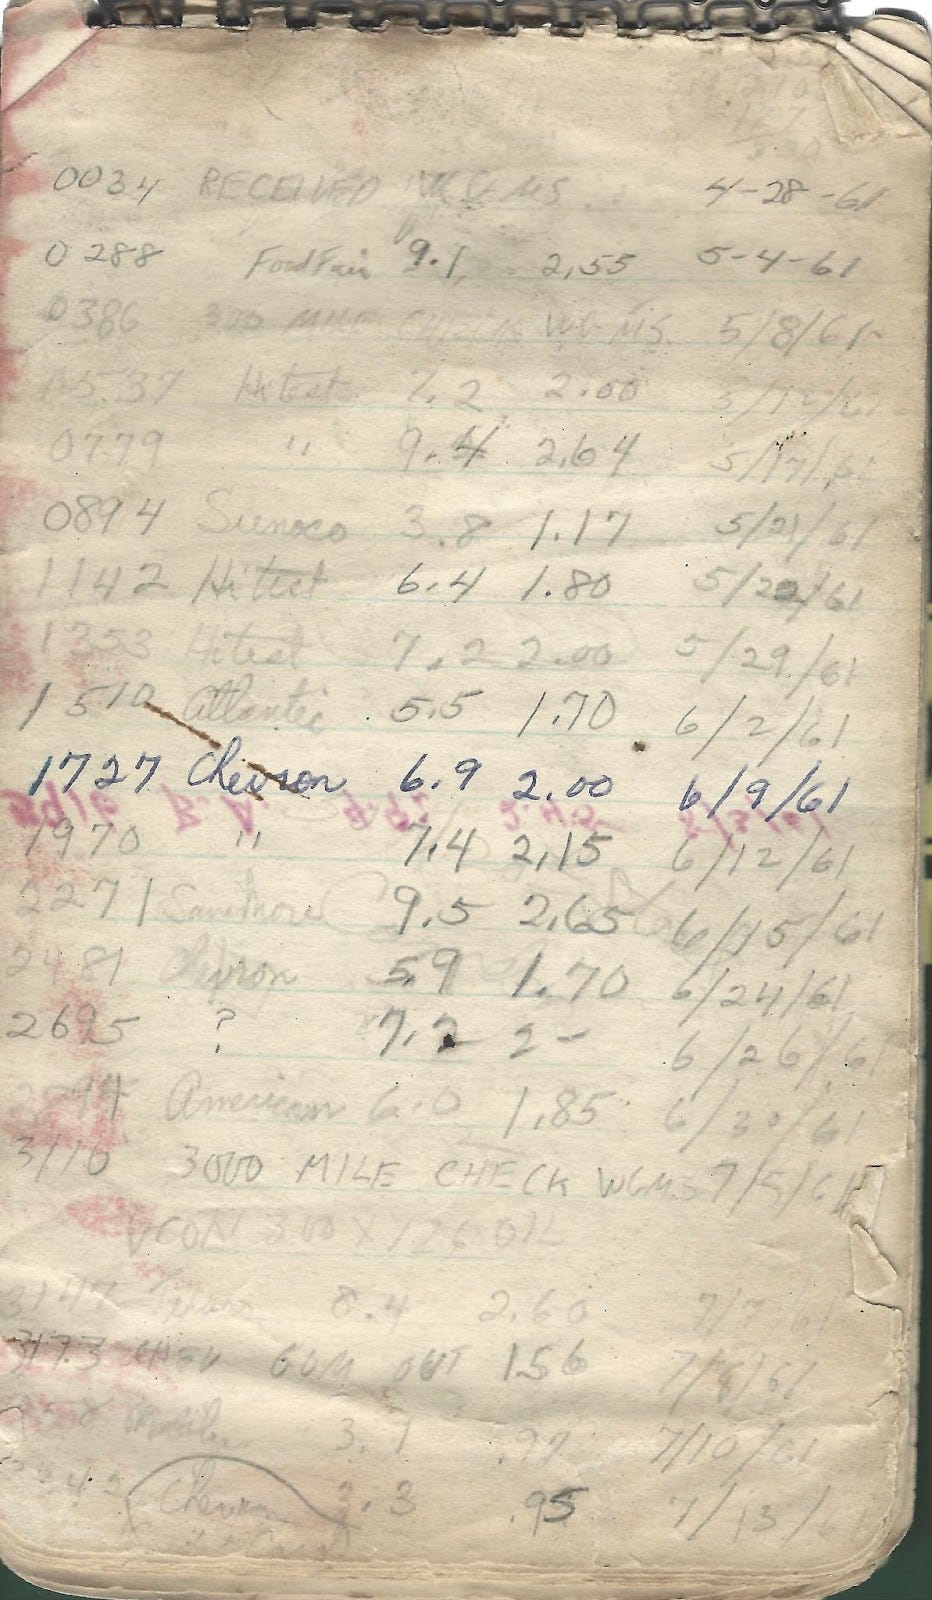 0034 RECEIVED 4-28-61
0288 Food Fair 9.1 2.55 5-4-61
0386 300 MILE CHECK WGMS 5/8/61
0537 Hitest 7.2 2.00 5/12/61
0779 " 9.4 2.64 5/17/61
0894 Sunoco 3.8 1.17 5/21/61
1142 Hitest 6.4 1.80 5/22/61
1353 Hitest 7.2 2.00 5/29/61
1510 Atlantic 5.5 1.70 6/2/61
1727 Chevron 6.9 2.00 6/9/61
1970 " 7.4 2.15 6/12/61
2271 Savmore 9.5 2.65 6/15/61
2481 Chevron 5.9 1.70 6/24/61
2695 ? 7.2 2- 6/26/61
American 6.0 1.85 6/30/61
3110 3000 MILE CHECK WGMS 7/5/61
OIL
3147 8.4 2.60 7/7/61
3173 GUM OUT 1.56 7/8/61
3.7 .97 7/10/61
3242 Chevron 3.3 .95 7/13/61